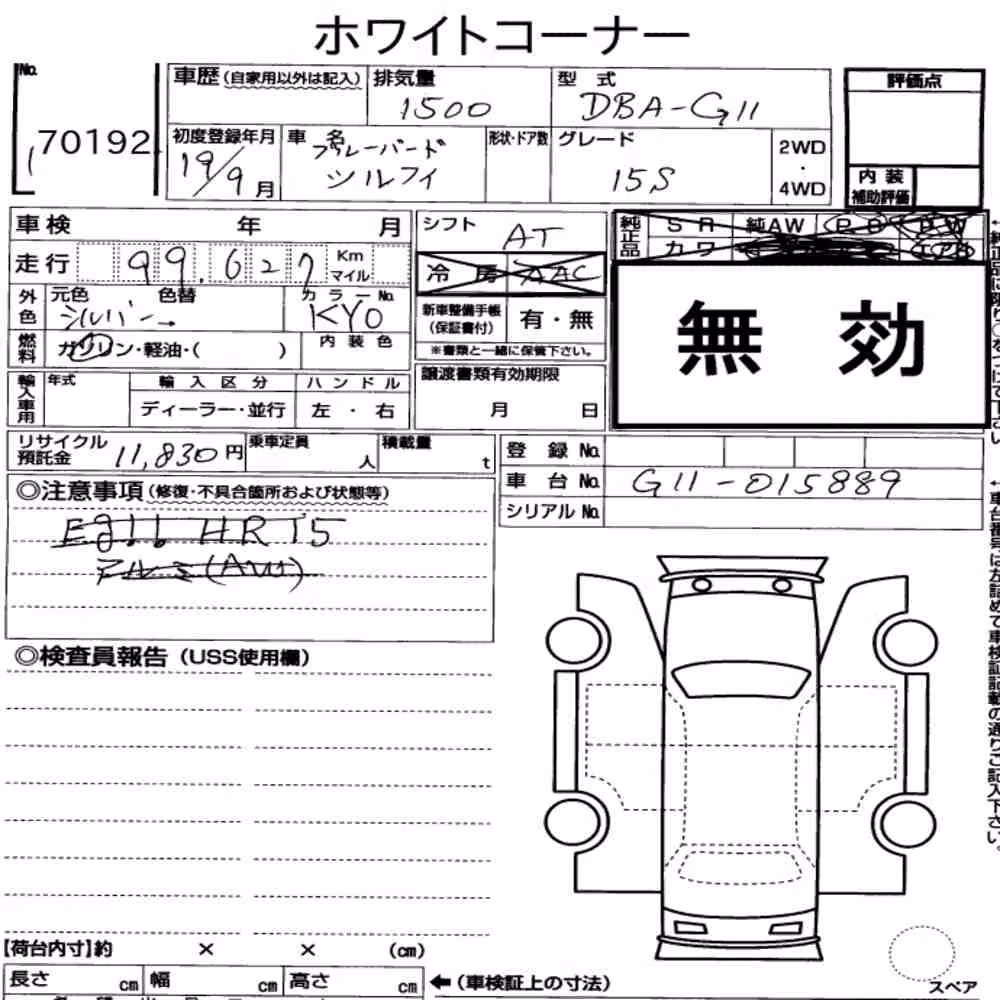 ホワイトコーナー
No. 70192
車歴(自家用以外は記入) 排気量 1500 型 式 DBA-G11
評価点
初度登録年月 19/9月 車 名 ブルーバード シルフィ 形状・ドア数 グレード 15S 2WD ・ 4WD
内 装 補助評価
車検 年 月
シフト AT
純正品 S R 純AW
カ ワ
走行 99,627 Km マイル
冷 房 AAC
外色 元色 シルバー 色替 カラーNo. KY0
新車整備手帳 (保証書付) 有・無
※書類と一緒に保管下さい。
無 効
燃料 ガソリン・軽油・( ) 内装色
輸入車用 年式 輸入区分 ディーラー・並行 ハンドル 左・右
譲渡書類有効期限 月 日
リサイクル預託金 11,830円 乗車定員 人 積載量 t
登 録 No.
車 台 No. G11-015889
シリアル No.
◎注意事項(修復・不具合箇所および状態等)
HR15
アルミ(AW)
◎検査員報告(USS使用欄)
【荷台内寸】約 × × (cm)
長さ cm 幅 cm 高さ cm ←(車検証上の寸法)
スペア
↑車台番号は左詰めで車検証記載の通りご記入下さい。